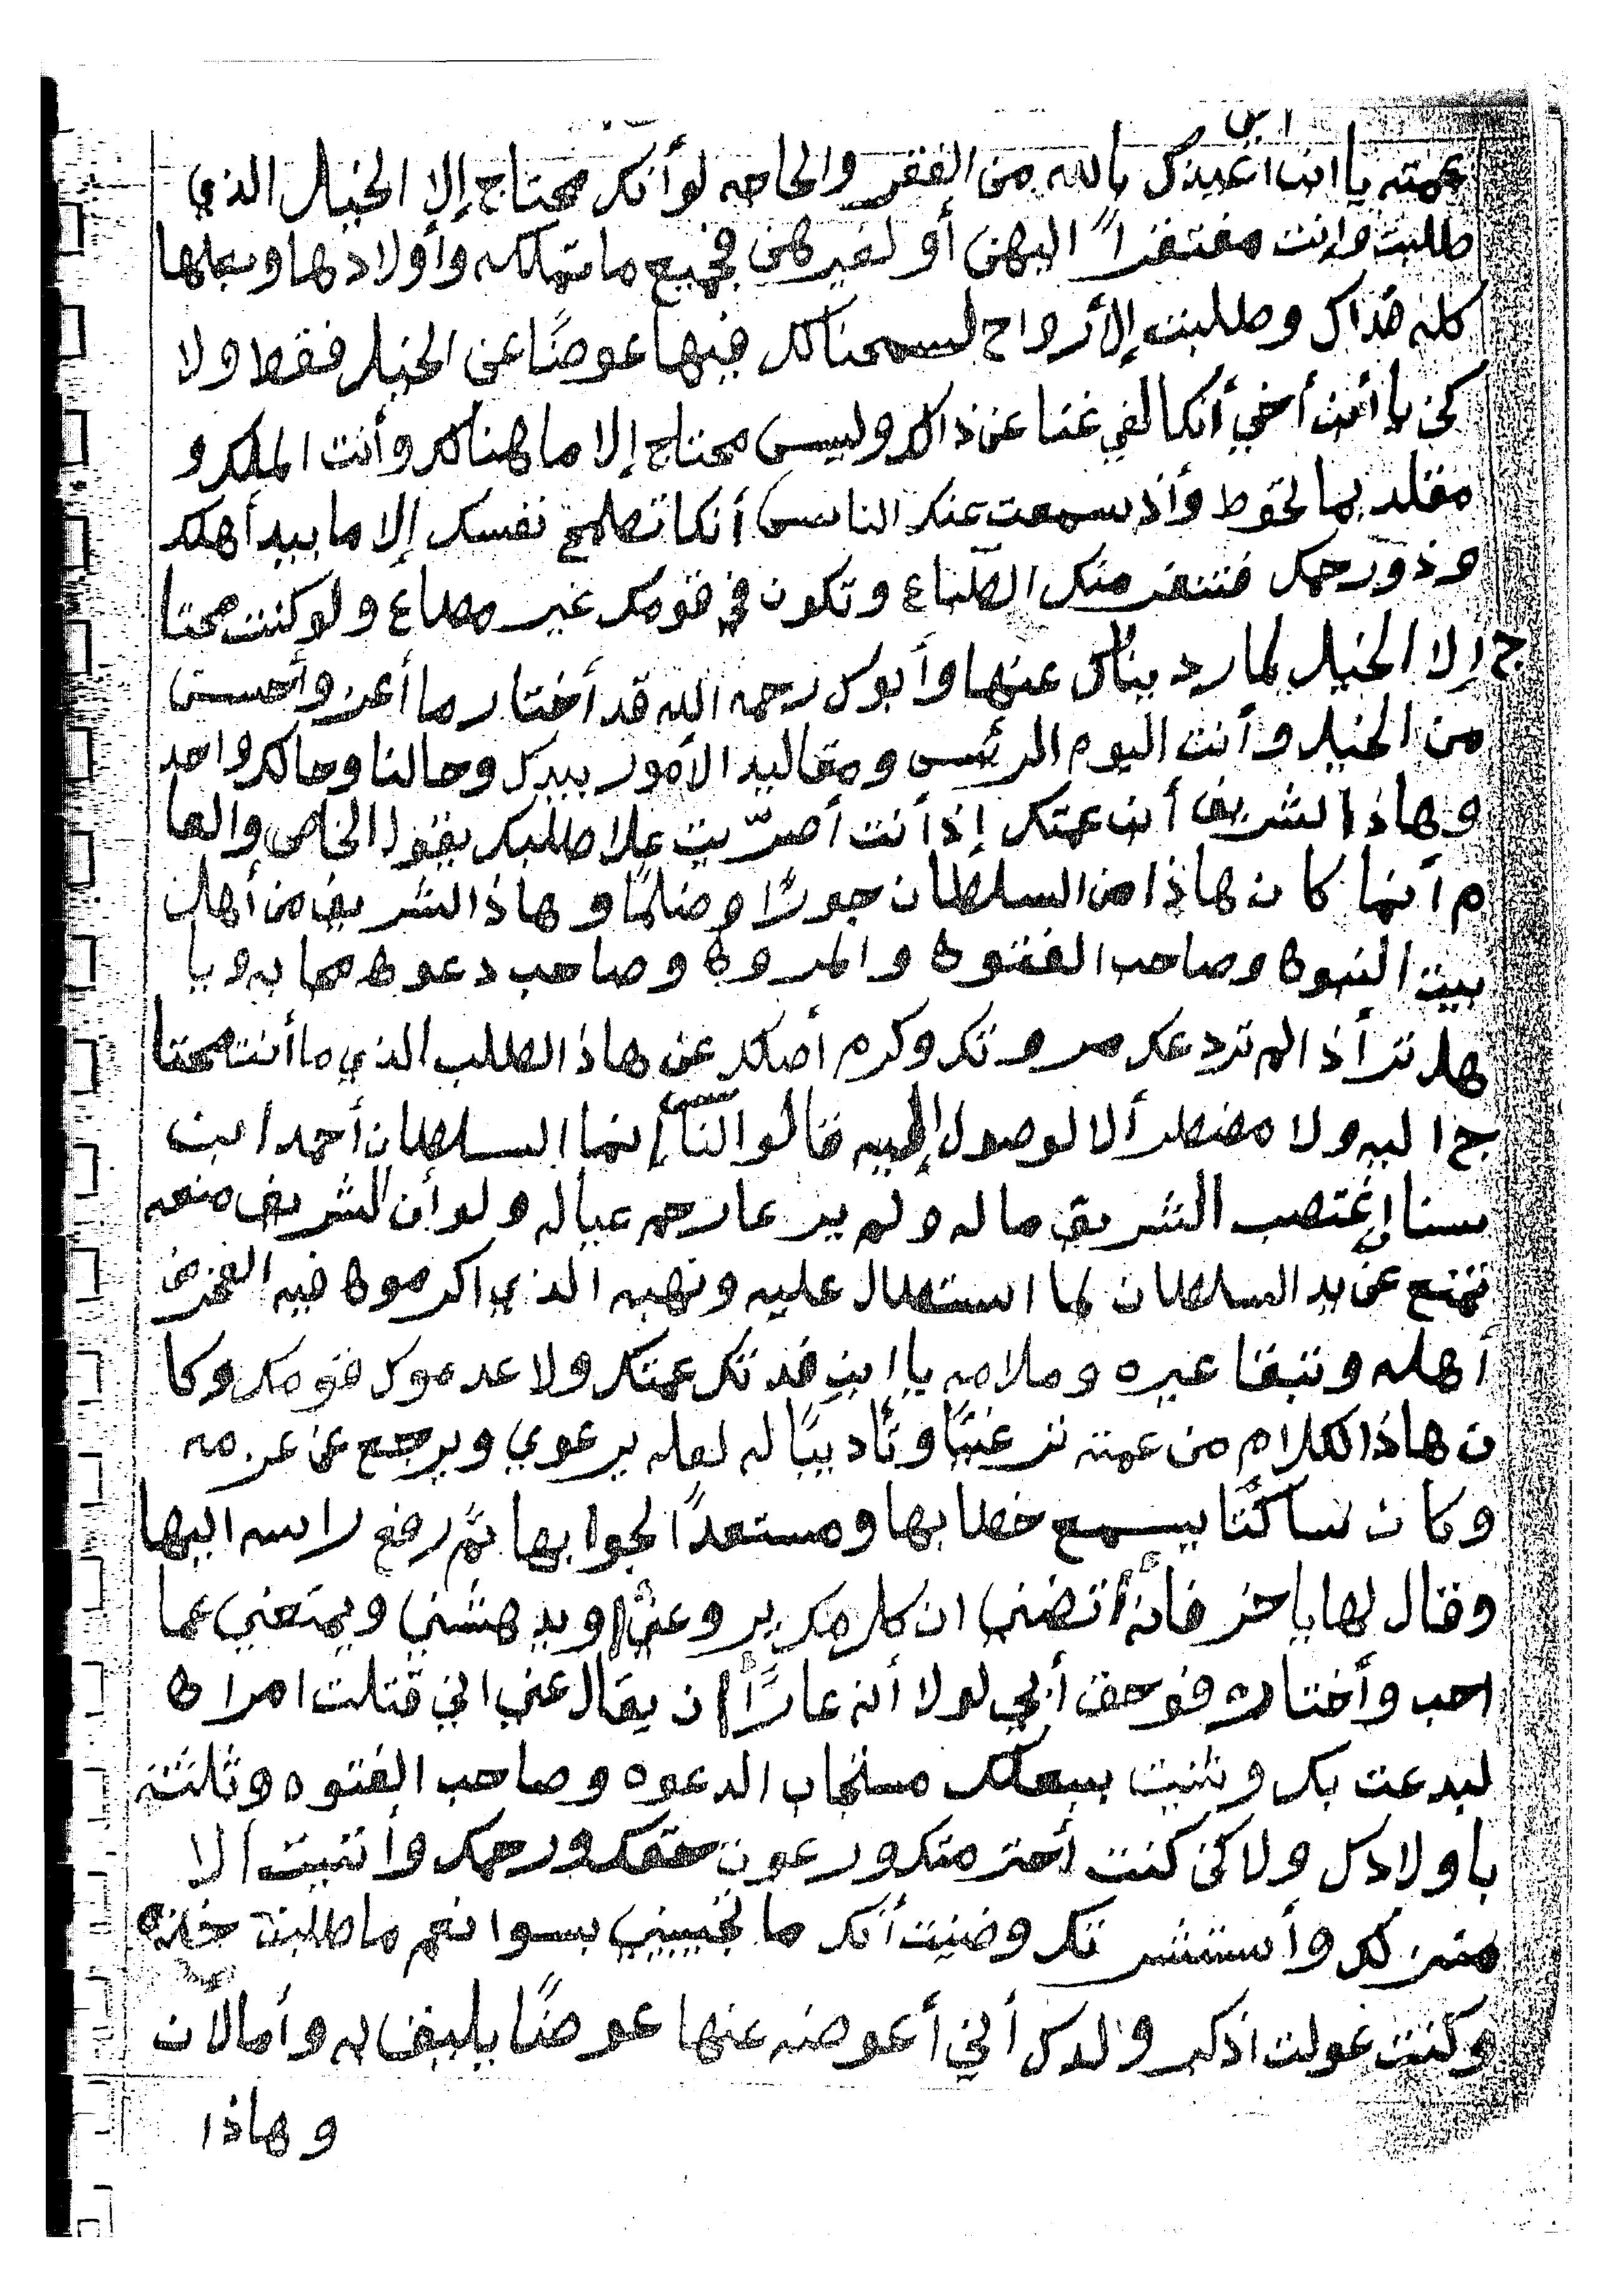 ابن
عمته يا ابن اعيذك بالله من الفقر والحاجه لو أنك محتاج إلا الخيل الذي
طلبت وانت مفتقراً اليهن أو لغيرهن فجميع ما تملكه وأولادها وبعلها
كله فداك وطلبت إلا أرواح لسمحنا لك فيها عوضًا عن الخيل فقط ولا
كن يا أنت أخي أنكا لفي غنا عن ذالك وليس محتاج إلا ما هنالك وأنت الملك و
مقلد بما تحوط وأذ سمعت عنك الناس أنكا تطمح نفسك إلا ما بيد أهلك
وذو رحمك فتنفر منك الطباع وتكون في قومك غير مطاع ولو كنت محتا
ج إلا الخيل لما رديناك عنها وأبوك رحمه الله قد أختار ما أعز وأحسن
من الخيل وأنت اليوم الرئس ومقاليد الأمور بيدك وحالنا وحالك واحد
وهاذا الشريف أبن عمتك إذ أنت أصرّيت علا طلبك يقول الخاص والعا
م أنما كان هاذا من السلطان جورًا وضلمًا وهاذ الشريف من أهل
بيت النبوه وصاحب الفتوه والمروه وصاحب دعوه مجابه ويا
هل ترا أذا لم تردعك مروتك وكرم أصلك عن هاذ الطلب الذي ما أنت محتا
ج اليه ولا مضطر ألا لوصول إليه قالوا الناس إنما السلطان أحمد ابن
سنا إغتصب الشريف ماله ولم يرعا رحم عياله ولو أن الشريف منعه
تمنع عن يد السلطان لما استطال عليه ونهبه الذي اكرموه فيه الغز من
أهله وتبقا عيره وملامه يا ابن فدتك عمتك ولا عدموك قومك وكا
ن هاذا لكلام من عمته ترغبًا وتأديبًا له لعله يرعوي ويرجع عن عزمه
وكان ساكتًا يسمع خطابها ومستعداً لجوابها ثمّ رفع راسه اليها
وقال لها يا أتضني ان كلامك يروعني ويدهشني ويمتعني عما
احب وأختاره فوحق أبي لولا أنه عارًا ان يقال عني اني قتلت امراه
لبدعت بك وثنيت ببعلك مستجاب الدعوه وصاحب الفتوه وثلثته
باولادك ولاكن كنت أحترمتك ورعون حقك ورحمك وأتيت الا
منزلك وأستشرتك وضنيت أنك ما تجيبيني بسوا نعم ما طلبت
وكنت عولت اذكر ولدك أني أعوضه عنها عوضًا يليق به وأما الآن
وهاذا